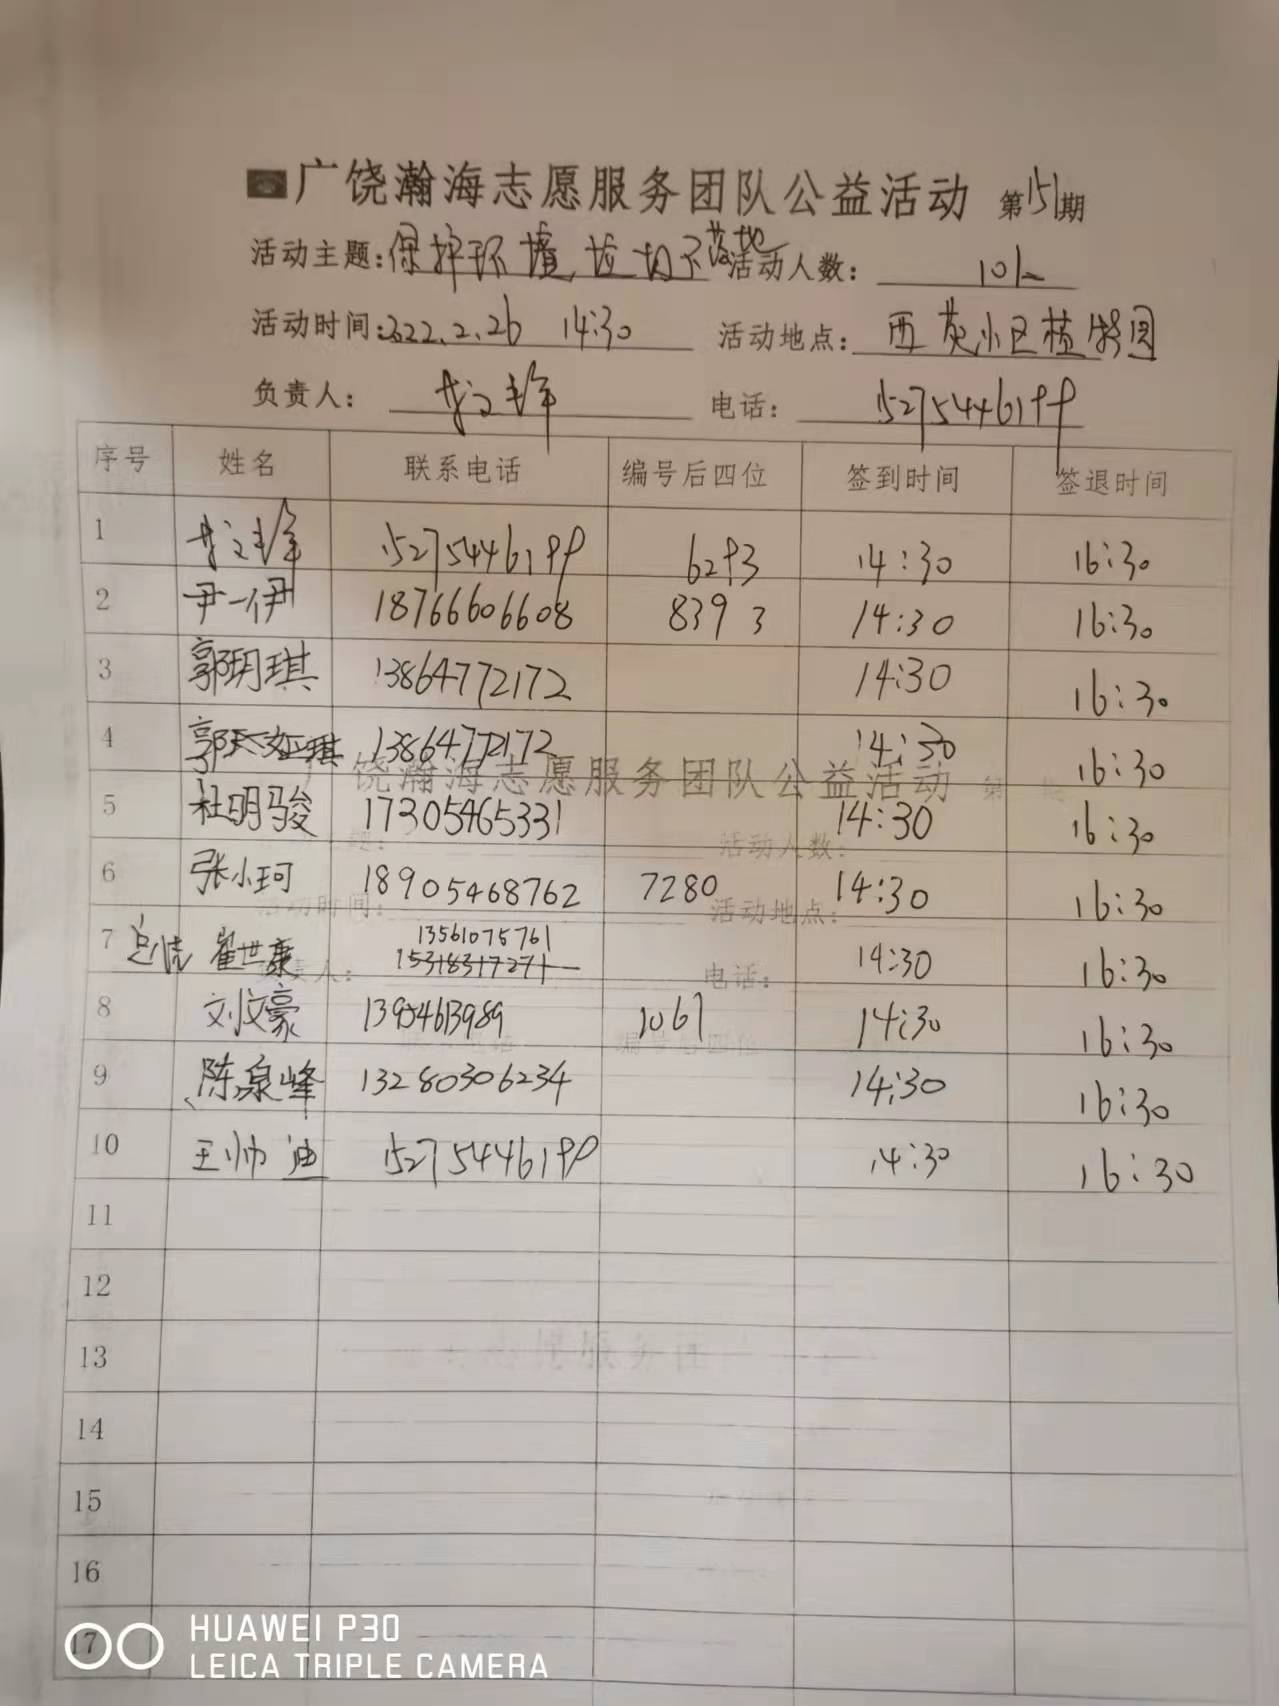 广饶瀚海志愿服务团队公益活动 第151期
活动主题:保护环境,垃圾不落地 活动人数: 10人
活动时间:2022.2.26 14:30 活动地点: 西苑小区植物园
负责人: 电话: 15275446199
序号 姓名 联系电话 编号后四位 签到时间 签退时间
1 15275446199 6293 14:30 16:30
2 尹一伊 18766606608 8393 14:30 16:30
3 郭玥琪 13864772172 14:30 16:30
4 郭 琪 13864772172 14:30 16:30
5 杜明骏 17305465331 14:30 16:30
6 张小珂 18905468762 7280 14:30 16:30
13561075761
7 总结 崔世康 15318317271 14:30 16:30
8 刘文豪 13954613989 1061 14:30 16:30
9 陈泉峰 13280306234 14:30 16:30
10 王帅迪 15275446199 14:30 16:30
11
12
13
14
15
16
17
HUAWEI P30
LEICA TRIPLE CAMERA